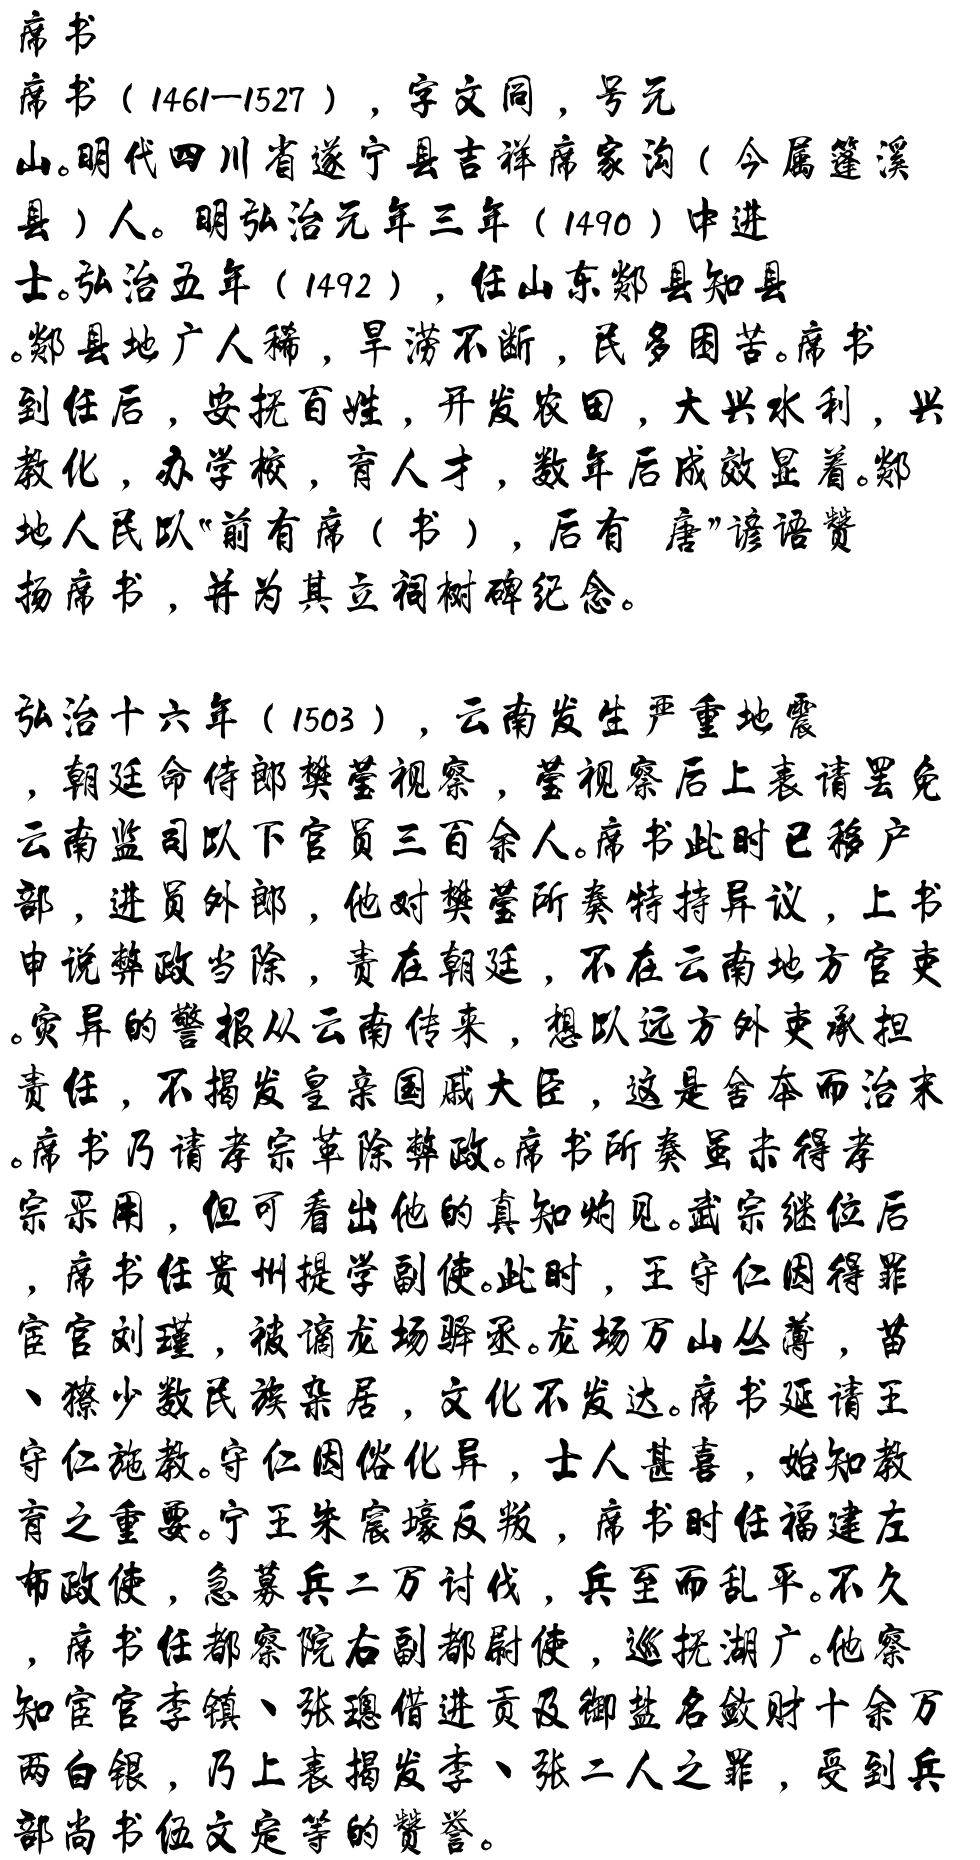 席书
席书（1461—1527），字文同，号元
山。明代四川省遂宁县吉祥席家沟（今属蓬溪
县）人。明弘治元年三年（1490）中进
士。弘治五年（1492），任山东郯县知县
。郯县地广人稀，旱涝不断，民多困苦。席书
到任后，安抚百姓，开发农田，大兴水利，兴
教化，办学校，育人才，数年后成效显着。郯
地人民以“前有席（书），后有 唐”谚语赞
扬席书，并为其立祠树碑纪念。
弘治十六年（1503），云南发生严重地震
，朝廷命侍郎樊莹视察，莹视察后上表请罢免
云南监司以下官员三百余人。席书此时已移户
部，进员外郎，他对樊莹所奏特持异议，上书
申说弊政当除，责在朝廷，不在云南地方官吏
。灾异的警报从云南传来，想以远方外吏承担
责任，不揭发皇亲国戚大臣，这是舍本而治末
。席书乃请孝宗革除弊政。席书所奏虽未得孝
宗采用，但可看出他的真知灼见。武宗继位后
，席书任贵州提学副使。此时，王守仁因得罪
宦官刘瑾，被谪龙场驿丞。龙场万山丛薄，苗
、獠少数民族杂居，文化不发达。席书延请王
守仁施教。守仁因俗化异，士人甚喜，始知教
育之重要。宁王朱宸壕反叛，席书时任福建左
布政使，急募兵二万讨伐，兵至而乱平。不久
，席书任都察院右副都尉使，巡抚湖广。他察
知宦官李镇、张璁借进贡及御盐名敛财十余万
两白银，乃上表揭发李、张二人之罪，受到兵
部尚书伍文定等的赞誉。